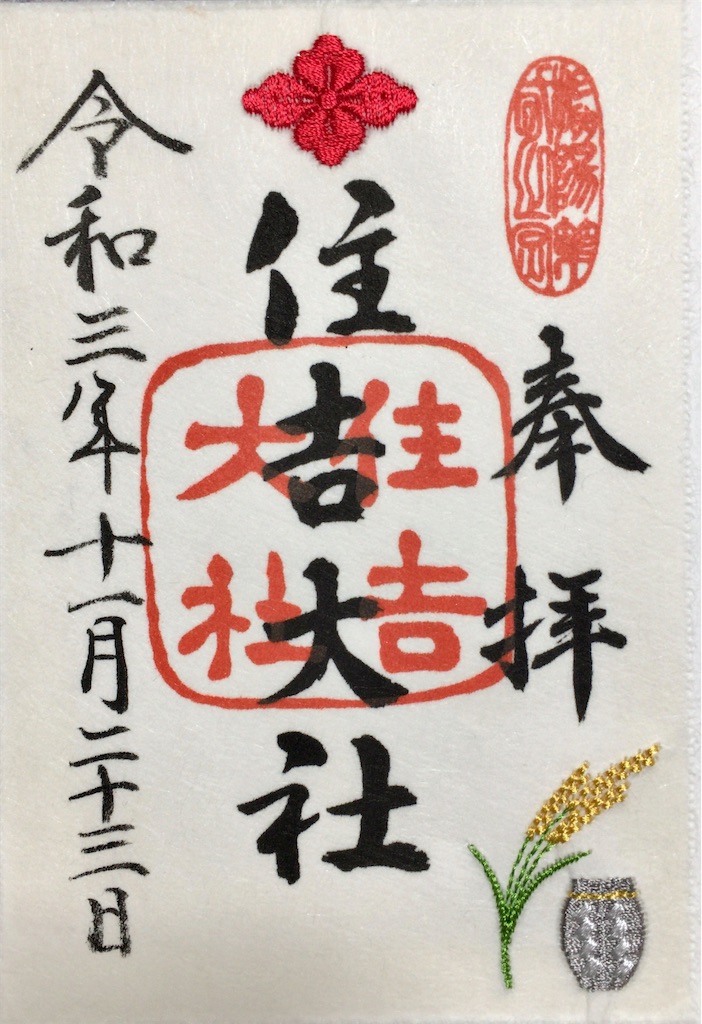 奉拝
住吉大社
住吉大社
令和三年十一月二十三日